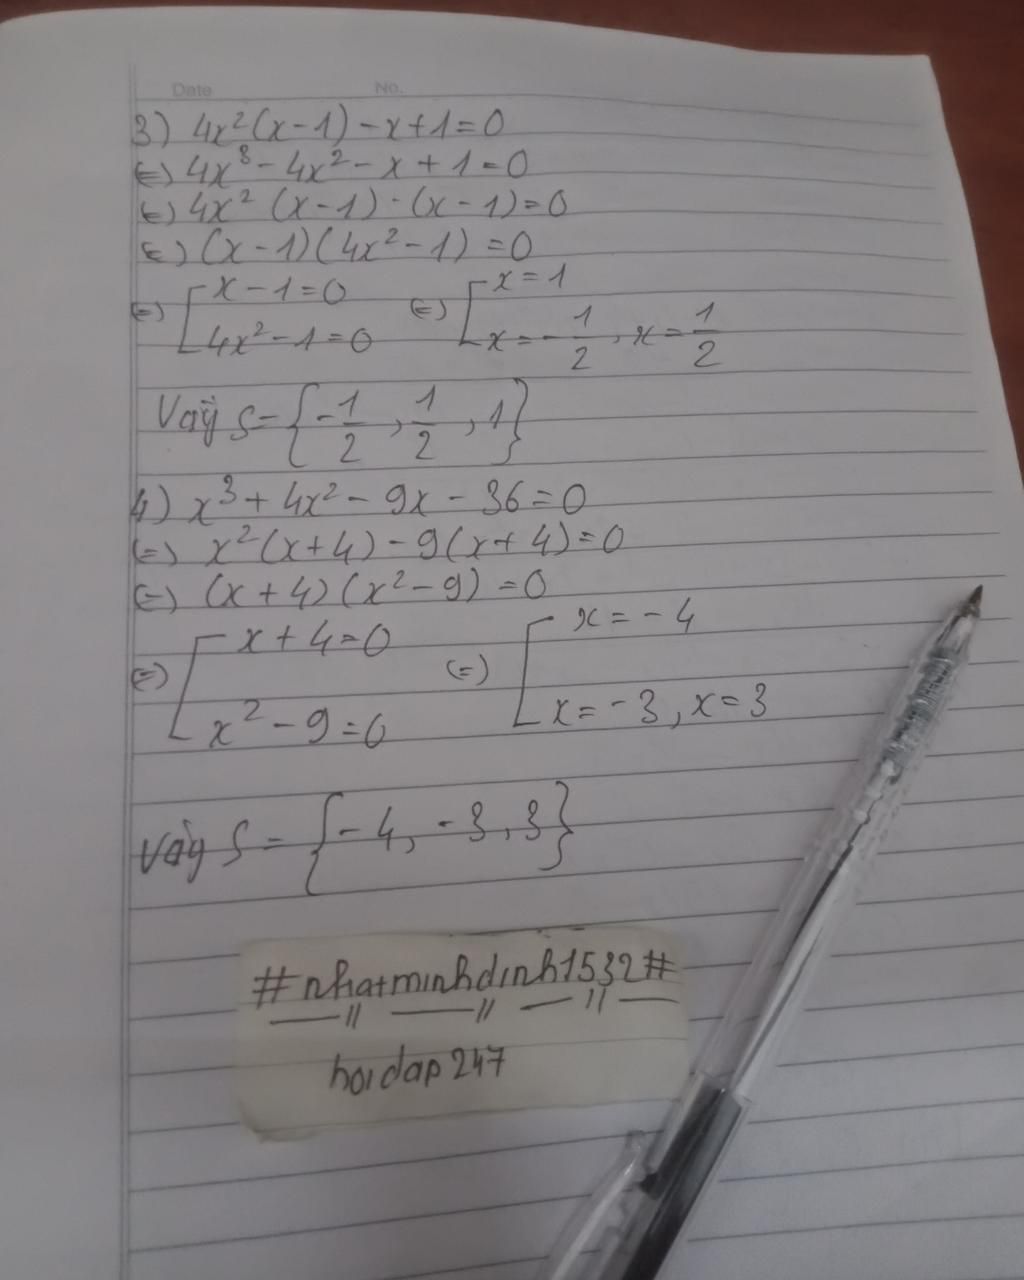 Date No.
3) 4x²(x-1)-x+1=0
(=) 4x³-4x²-x+1=0
(=) 4x² (x-1)-(x-1)=0
(=) (x-1)(4x²-1)=0
(=) [ x-1=0 (=) [ x=1
4x²-1=0 x=-1/2, x=1/2
Vậy S={-1/2, 1/2, 1}
4) x³+4x²-9x-36=0
(=) x²(x+4)-9(x+4)=0
(=) (x+4)(x²-9)=0
(=) [ x+4=0 (=) [ x=-4
x²-9=0 x=-3, x=3
Vậy S = {-4, -3, 3}
#nhatminhdinh1532#
hoidap247